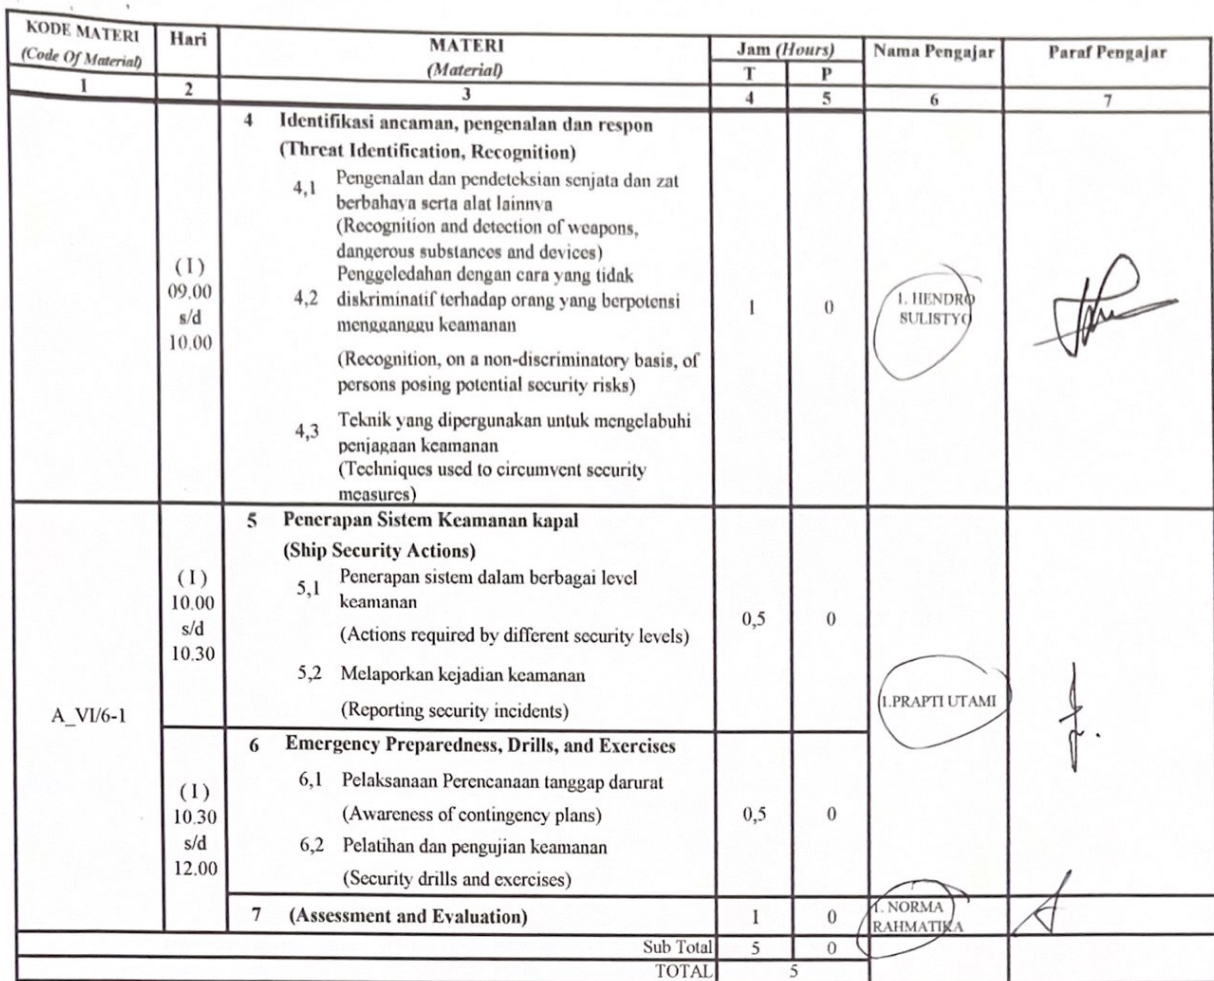 KODE MATERI
(Code Of Material)
Hari
MATERI
(Material)
Jam (Hours)
T
P
Nama Pengajar
Paraf Pengajar
1
2
3
4
5
6
7
4 Identifikasi ancaman, pengenalan dan respon
(Threat Identification, Recognition)
4,1 Pengenalan dan pendeteksian senjata dan zat
berbahaya serta alat lainnya
(Recognition and detection of weapons,
dangerous substances and devices)
Penggeledahan dengan cara yang tidak
4,2 diskriminatif terhadap orang yang berpotensi
mengganggu keamanan
(Recognition, on a non-discriminatory basis, of
persons posing potential security risks)
4,3 Teknik yang dipergunakan untuk mengelabuhi
penjagaan keamanan
(Techniques used to circumvent security
measures)
(I)
09.00
s/d
10.00
1
0
1. HENDRO
SULISTYO
A_VI/6-1
(I)
10.00
s/d
10.30
5 Penerapan Sistem Keamanan kapal
(Ship Security Actions)
5,1 Penerapan sistem dalam berbagai level
keamanan
(Actions required by different security levels)
5,2 Melaporkan kejadian keamanan
(Reporting security incidents)
0,5
0
1.PRAPTI UTAMI
(I)
10.30
s/d
12.00
6 Emergency Preparedness, Drills, and Exercises
6,1 Pelaksanaan Perencanaan tanggap darurat
(Awareness of contingency plans)
6,2 Pelatihan dan pengujian keamanan
(Security drills and exercises)
0,5
0
7 (Assessment and Evaluation)
1
0
1. NORMA
RAHMATIKA
Sub Total
5
0
TOTAL
5